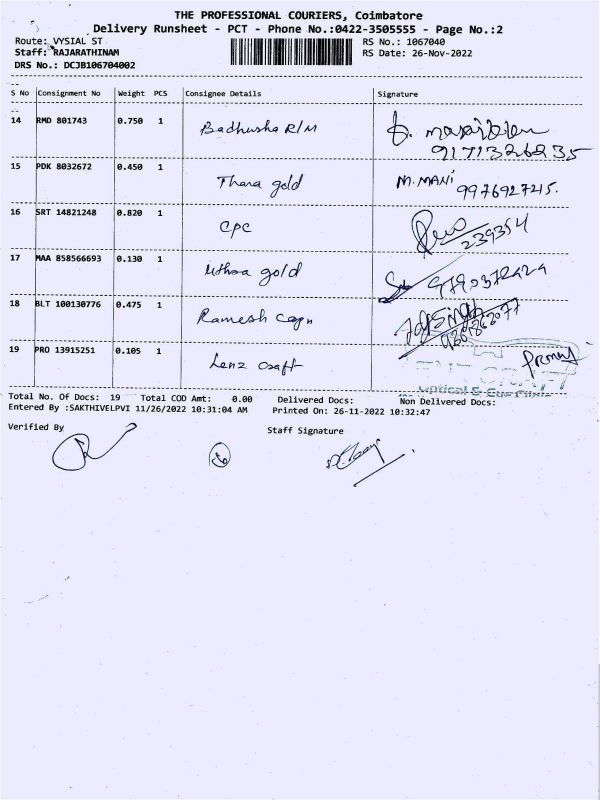 THE PROFESSIONAL COURIERS, Coimbatore
Delivery Runsheet - PCT - Phone No.:0422-3505555 - Page No.:2
Route: VYSIAL ST
RS No.: 1067040
Staff: RAJARATHINAM
RS Date: 26-Nov-2022
DRS No.: DCJB106704002
S No Consignment No Weight PCS Consignee Details Signature
14 RMD 801743 0.750 1 Badhusha R/M
9171326235
15 PDK 8032672 0.450 1 Thara gold M.MANI 9976927245.
16 SRT 14821248 0.820 1 CPC 239354
17 MAA 858566693 0.130 1 gold
18 BLT 100130776 0.475 1 Ramesh
19 PRO 13915251 0.105 1 Lenz craft
Optical &
Total No. Of Docs: 19 Total COD Amt: 0.00 Delivered Docs: Non Delivered Docs:
Entered By :SAKTHIVELPVI 11/26/2022 10:31:04 AM Printed On: 26-11-2022 10:32:47
Verified By Staff Signature